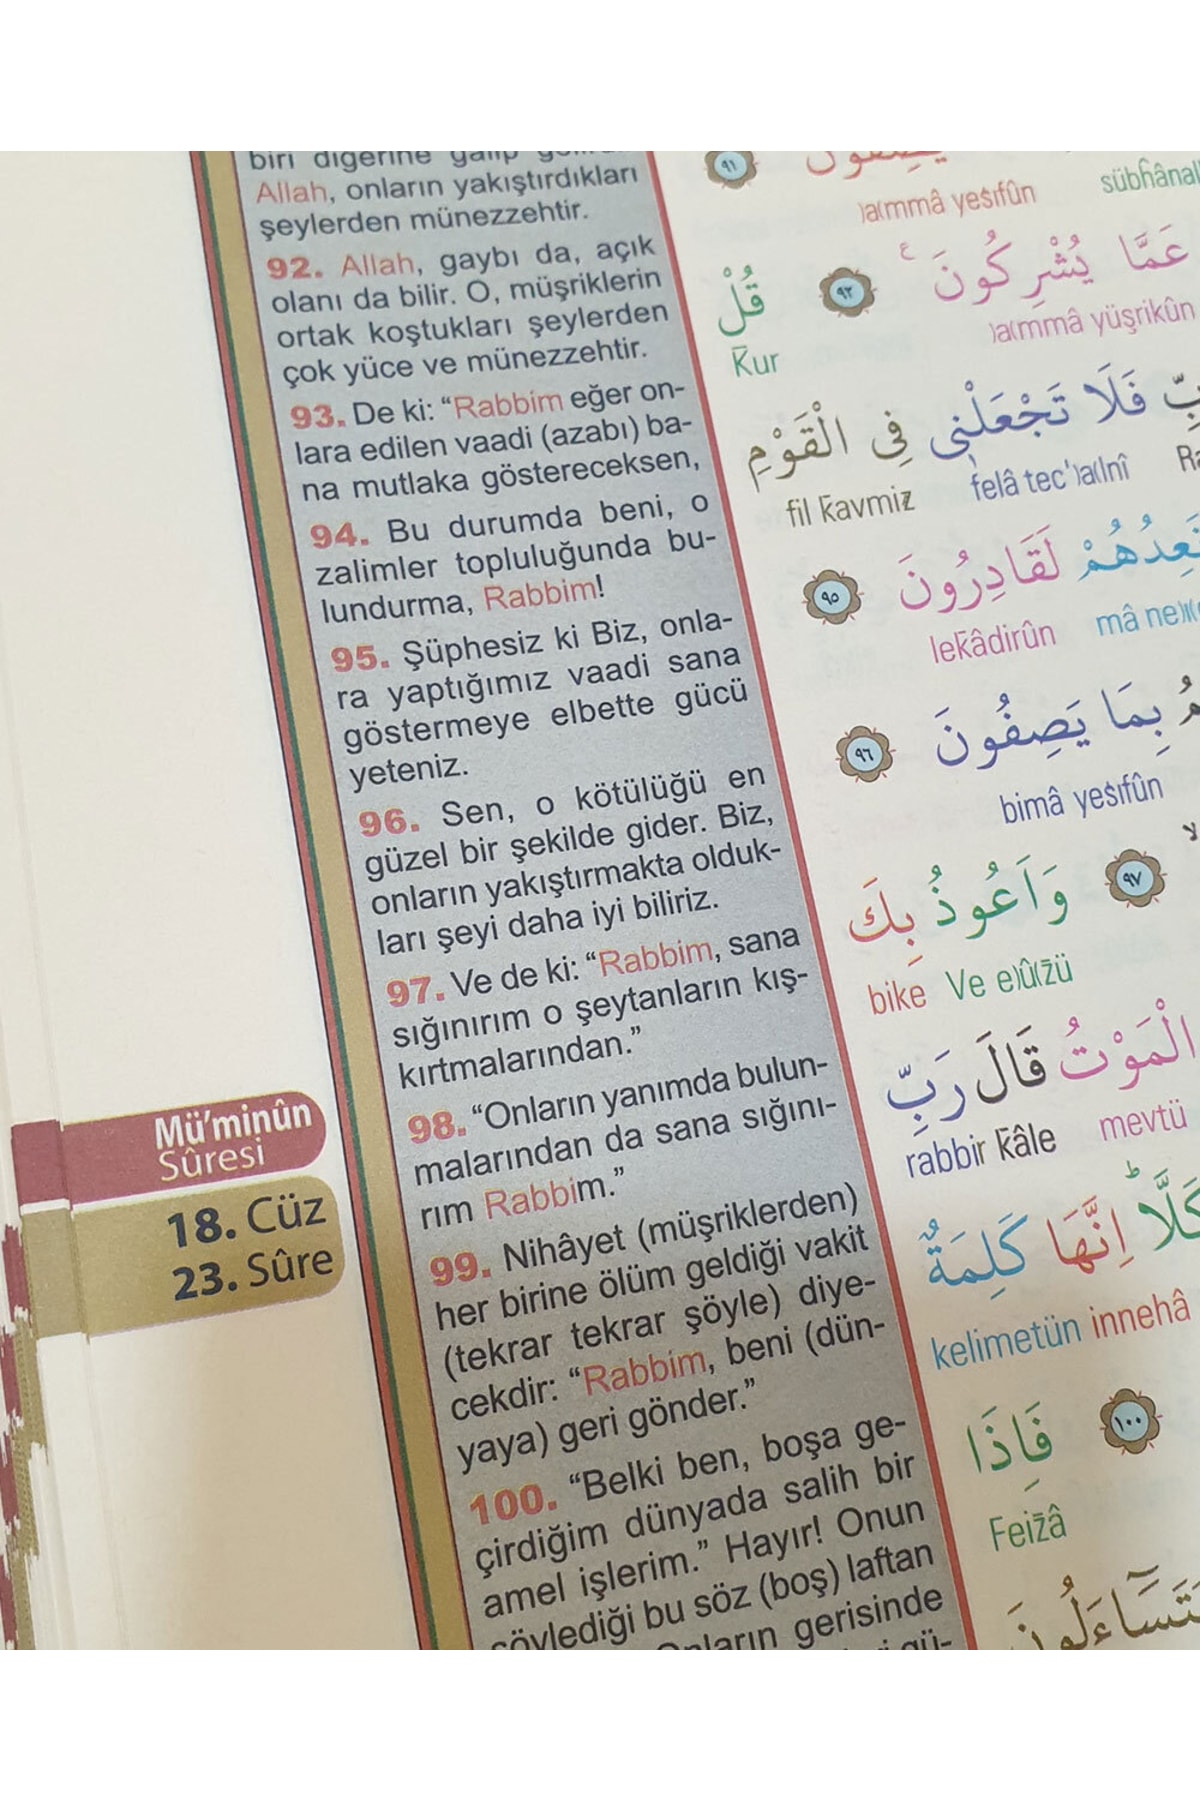 biri diğerine galip
Allah, onların yakıştırdıkları
şeylerden münezzehtir.
92. Allah, gaybı da, açık
olanı da bilir. O, müşriklerin
ortak koştukları şeylerden
çok yüce ve münezzehtir.
93. De ki: “Rabbim eğer on-
lara edilen vaadi (azabı) ba-
na mutlaka göstereceksen,
94. Bu durumda beni, o
zalimler topluluğunda bu-
lundurma, Rabbim!
95. Şüphesiz ki Biz, onla-
ra yaptığımız vaadi sana
göstermeye elbette gücü
yeteniz.
96. Sen, o kötülüğü en
güzel bir şekilde gider. Biz,
onların yakıştırmakta olduk-
ları şeyi daha iyi biliriz.
97. Ve de ki: “Rabbim, sana
sığınırım o şeytanların kış-
kırtmalarından.”
98. “Onların yanımda bulun-
malarından da sana sığını-
rım Rabbim.”
99. Nihâyet (müşriklerden)
her birine ölüm geldiği vakit
(tekrar tekrar şöyle) diye-
cekdir: “Rabbim, beni (dün-
yaya) geri gönder.”
100. “Belki ben, boşa ge-
çirdiğim dünyada salih bir
amel işlerim.” Hayır! Onun
söylediği bu söz (boş) laftan
Onların gerisinde
Mü’minûn
Sûresi
18. Cüz
23. Sûre
يَصِفُونَ ٩١
)a(mmâ yeṡıfûn sübĥânal
عَمَّا يُشْرِكُونَ ع ٩٢ قُلْ
)a(mmâ yüşrikûn
K̄ur
فَلَا تَجْعَلْنِي فِي الْقَوْمِ
fil k̄avmiz felâ tec')a(lnî
لَقَادِرُونَ ٩٥
lek̄âdirûn mâ ne)ı(
بِمَا يَصِفُونَ ٩٦
bimâ yeṡıfûn
٩٧ وَاَعُوذُ بِكَ
bike Ve e)û(z̄ü
الْمَوْتُ قَالَ رَبِّ
rabbir k̄âle mevtü
كَلَّا ط اِنَّهَا كَلِمَةٌ
kelimetün innehâ
١٠٠ فَاِذَا
Feiz̄â